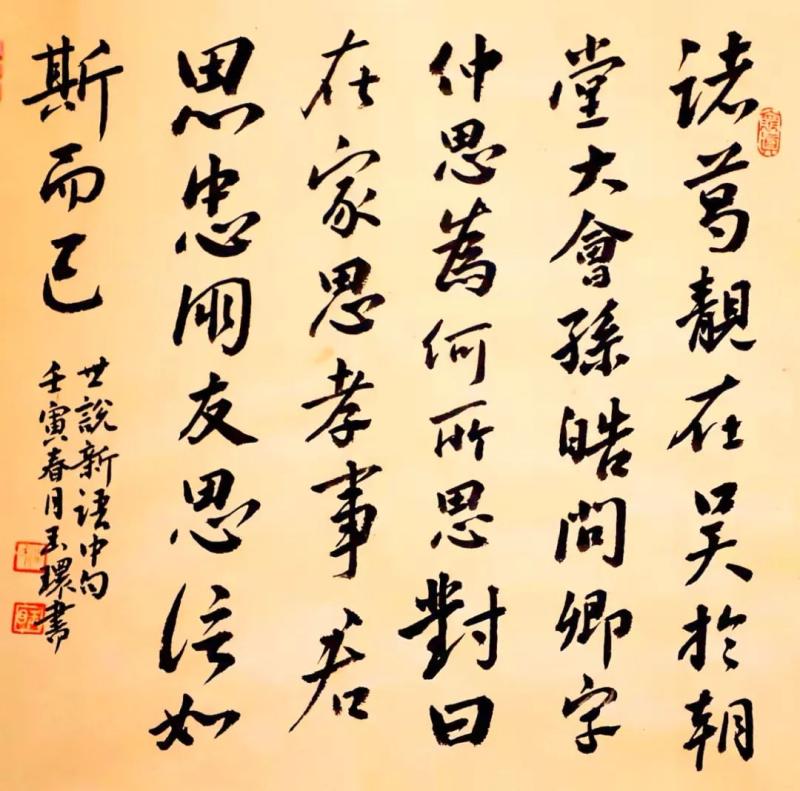 諸葛靚在吴於朝
堂大會孫皓問卿字
仲思為何所思對曰
在家思孝事君
思忠朋友思信如
斯而已
世說新語中句
壬寅春月玉環書